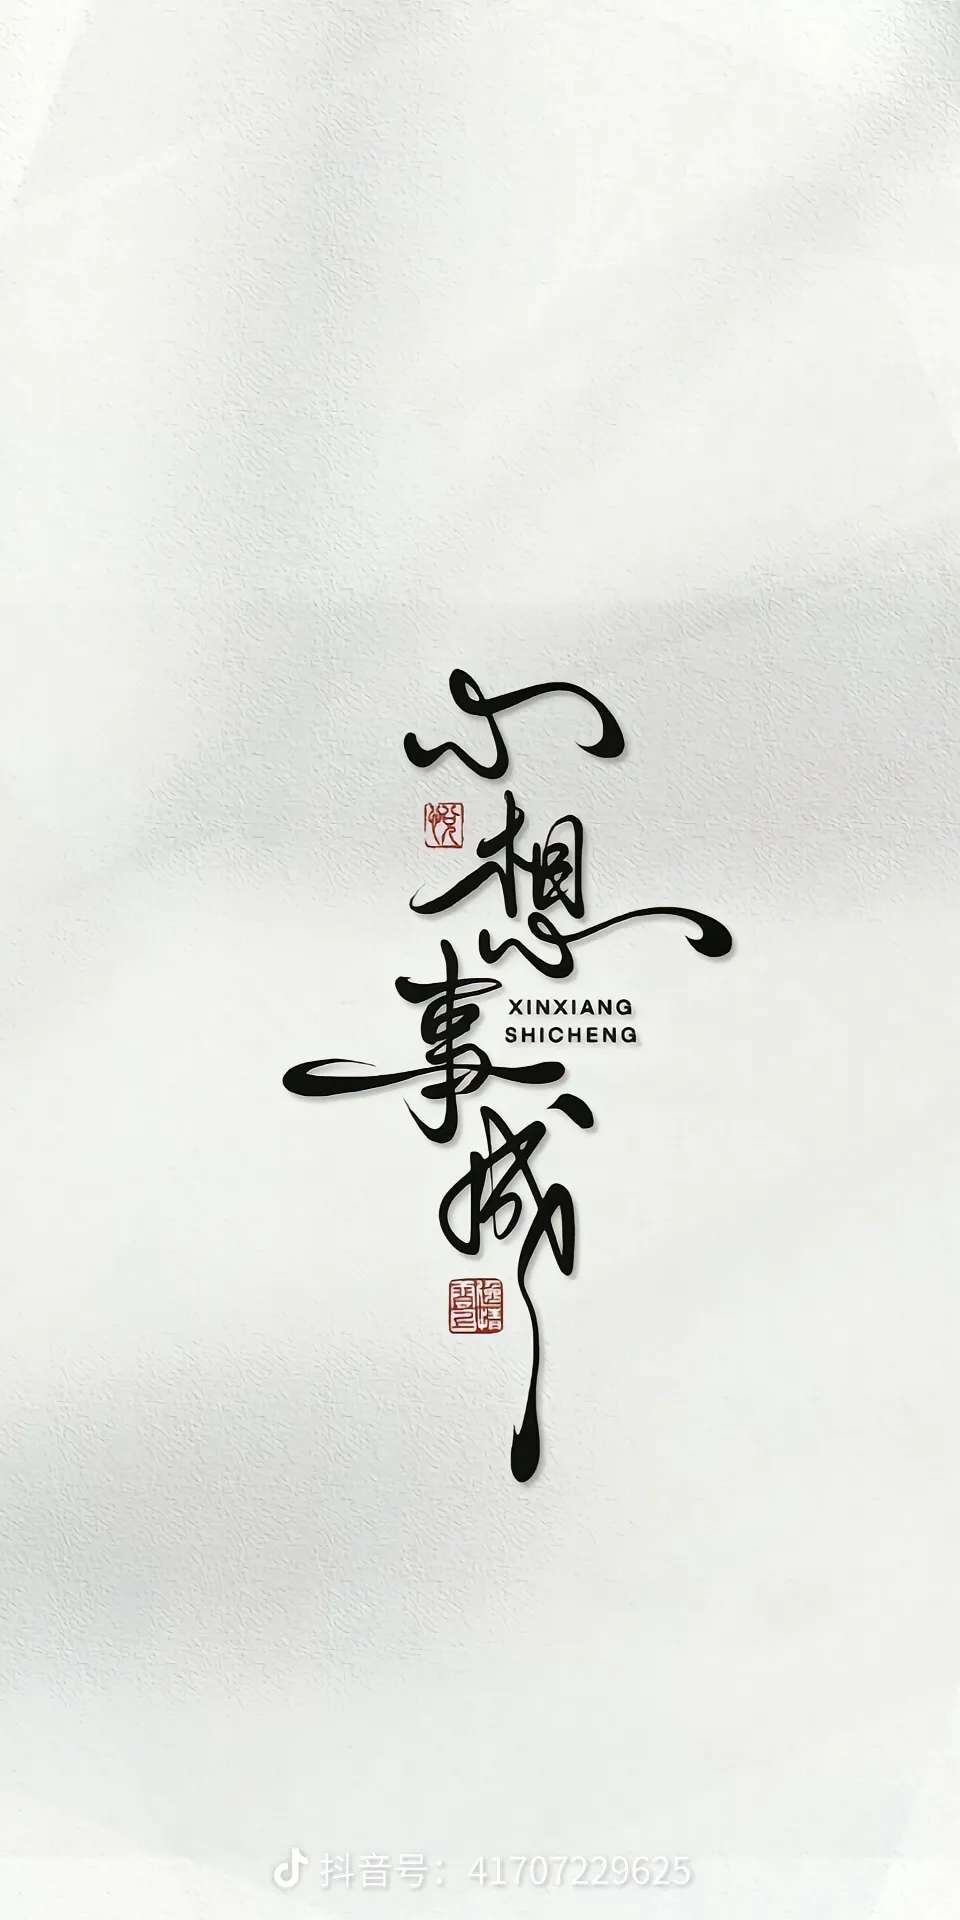 心想事成
XINXIANG
SHICHENG
悦
抖音号：41707229625